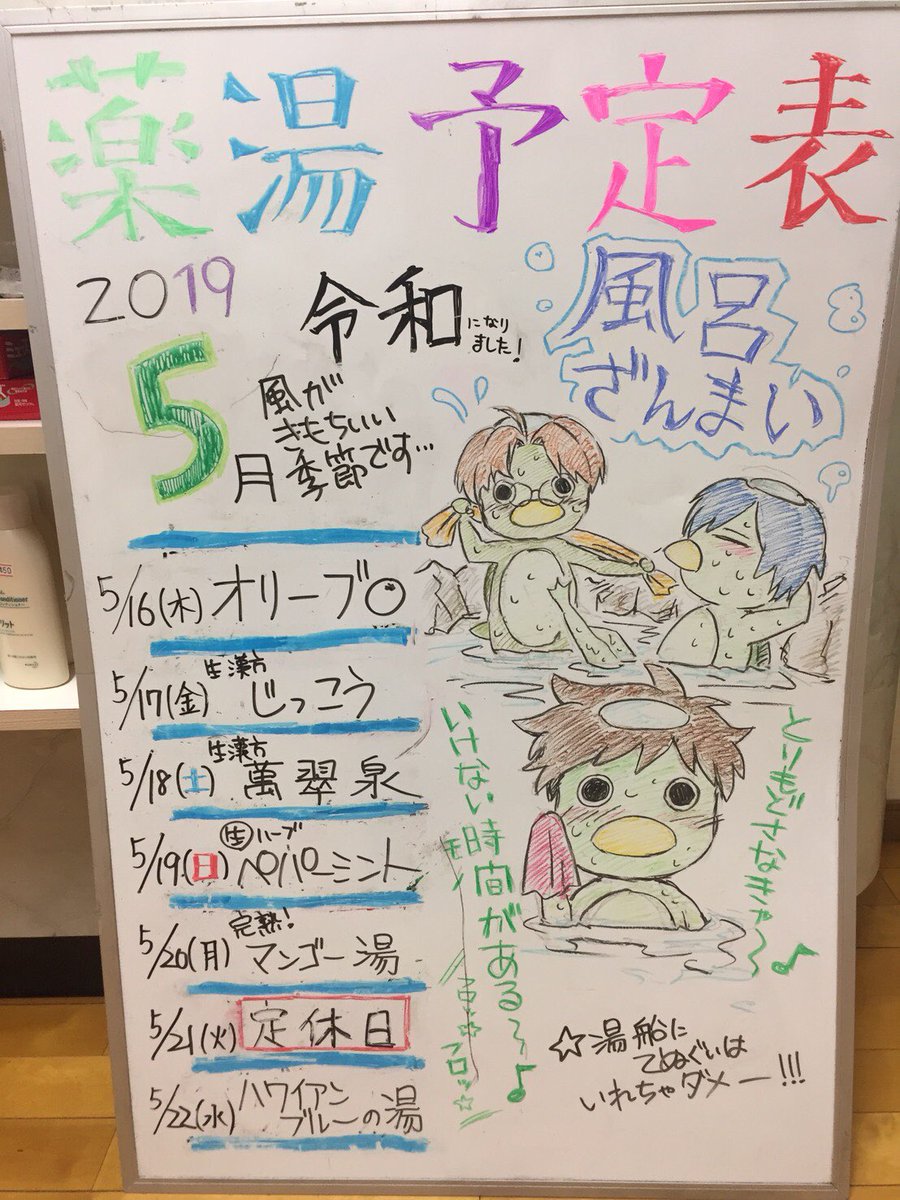 薬湯予定表
2019
令和になりました!
5月
風が
きもちいい
季節です…
風呂
ざんまい
5/16(木) オリーブ
5/17(金) 生漢方 じっこう
5/18(土) 生漢方 萬翠泉
5/19(日) 生ハーブ ペパーミント
5/20(月) 完熟! マンゴー湯
5/21(火) 定休日
5/22(水) ハワイアン
ブルーの湯
とりもどさなきゃ〜♪
いけない時間がある〜♪
☆湯船に
てぬぐいは
いれちゃダメー!!!